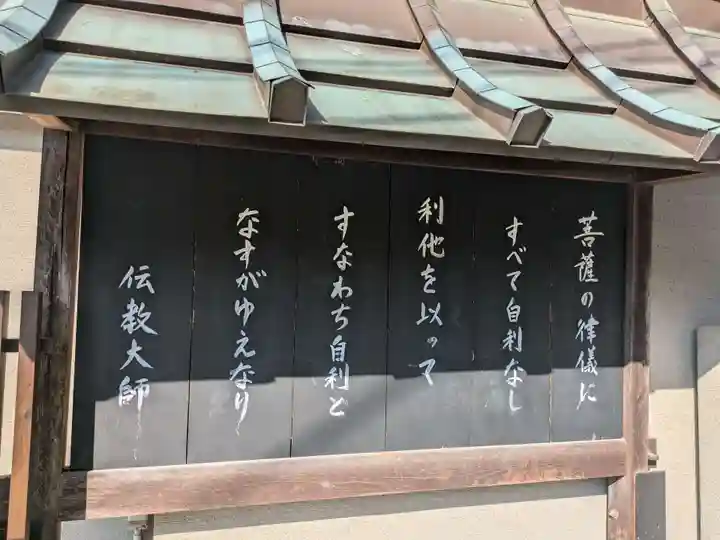 菩薩の律儀に
すべて自利なし
利他を以って
すなわち自利と
なすがゆえなり
伝教大師